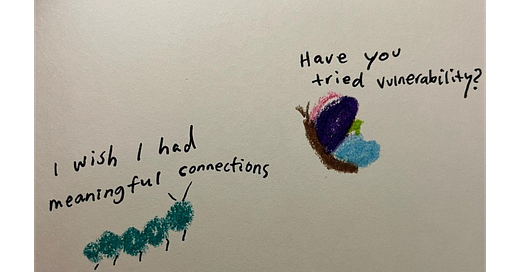 Have you
tried vulnerability?
I wish I had
meaningful connections